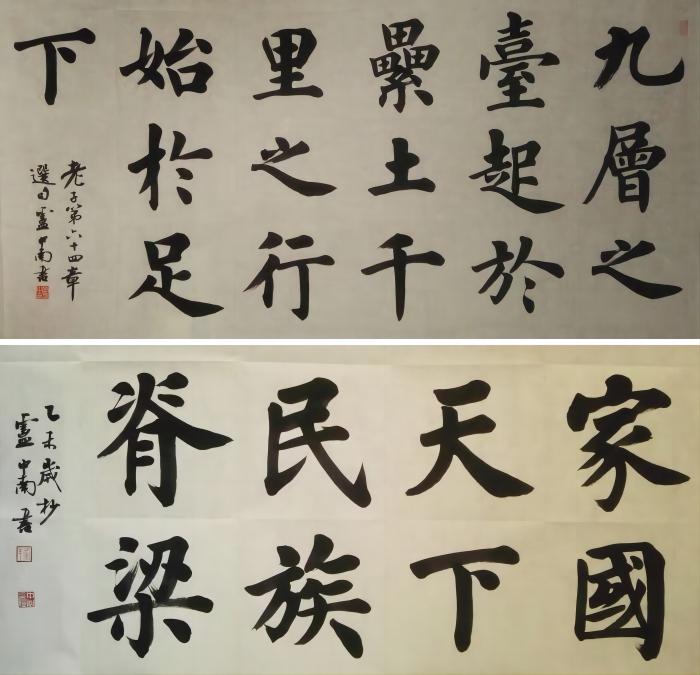 九層之
臺起於
纍土千
里之行
始於足
下
老子第六十四章
選句盧中南書
家國
天下
民族
脊梁
乙未歲杪
盧中南書